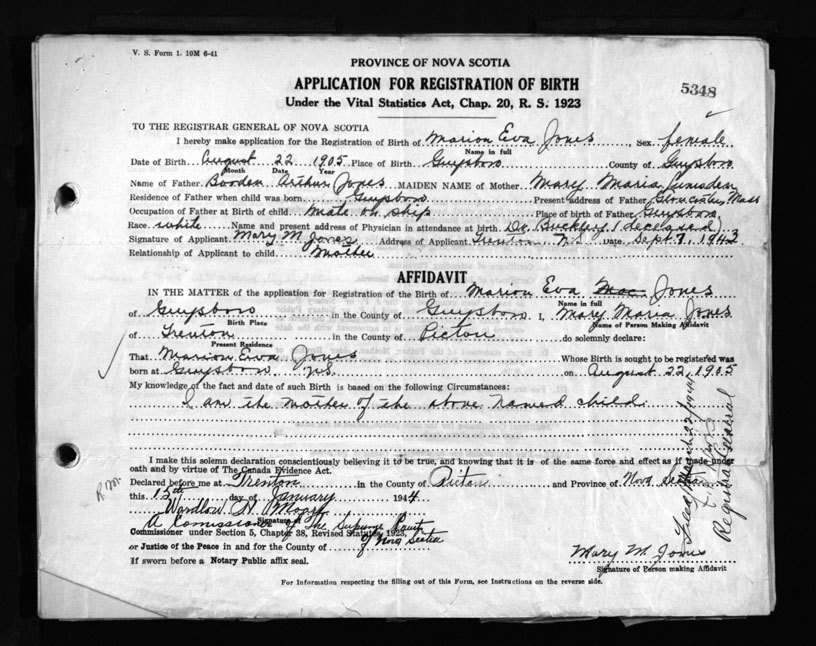 V. S. Form 1. 10M 6-41
PROVINCE OF NOVA SCOTIA
APPLICATION FOR REGISTRATION OF BIRTH
5348
Under the Vital Statistics Act, Chap. 20, R. S. 1923
TO THE REGISTRAR GENERAL OF NOVA SCOTIA
I hereby make application for the Registration of Birth of Marion Eva Jones, Sex female
Name in full
Date of Birth August 22 1905 Place of Birth Guysboro County of Guysboro
Month Date Year
Name of Father Borden Arthur Jones MAIDEN NAME of Mother Mary Maria Lumsden
Residence of Father when child was born Guysboro Present address of Father Gloucester, Mass
Occupation of Father at Birth of child mate on ship Place of birth of Father Guysboro
Race white Name and present address of Physician in attendance at birth Dr. Buckley (deceased)
Signature of Applicant Mary M Jones Address of Applicant Trenton N.S. Date Sept 7, 1943
Relationship of Applicant to child mother
AFFIDAVIT
IN THE MATTER of the application for Registration of the Birth of Marion Eva Mac Jones
Name in full
of Guysboro in the County of Guysboro I, Mary Maria Jones
Birth Place Name of Person Making Affidavit
of Trenton in the County of Pictou do solemnly declare:
Present Residence
That Marion Eva Jones Whose Birth is sought to be registered was
born at Guysboro N.S. on August 22, 1905
My knowledge of the fact and date of such Birth is based on the following Circumstances:
I am the mother of the above named child.
I make this solemn declaration conscientiously believing it to be true, and knowing that it is of the same force and effect as if made under
oath and by virtue of The Canada Evidence Act.
Declared before me at Trenton in the County of Pictou and Province of Nova Scotia
this 15th day of January 1944
Wardlow H.
Signature
A Commissioner of The Supreme Court
of Nova Scotia
Commissioner under Section 5, Chapter 38, Revised Statutes 1923,
or Justice of the Peace in and for the County of
If sworn before a Notary Public affix seal.
Mary M. Jones
Signature of Person making Affidavit
Registrar General
For Information respecting the filling out of this Form, see Instructions on the reverse side.